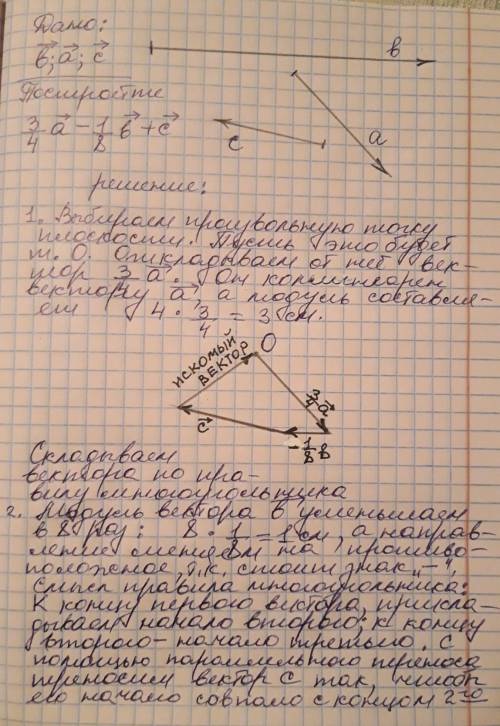 Дано:
b⃗; a⃗; c⃗
b
Постройте
3/4 a⃗ - 1/8 b⃗ + c⃗
c
a
решение:
1. Выбираем произвольную точку
плоскости. Пусть это будет
т. О. Откладываем от неё век-
тор 3/4 a⃗. Он коллинеарен
вектору a⃗, а модуль составля-
ет 4 · 3/4 = 3 см.
О
ИСКОМЫЙ
ВЕКТОР
3/4 a⃗
c⃗
- 1/8 b
Складываем
вектора по пра-
вилу многоугольника
2. Модуль вектора b уменьшаем
в 8 раз: 8 · 1/8 = 1 см, а направ-
ление меняем на противо-
положное, т.к. стоит знак „-“,
смысл правила многоугольника:
К концу первого вектора, прикла-
дываем начало второго; к концу
второго - начало третьего. С
помощью параллельного переноса
переносим вектор c так, чтобы
его начало совпало с концом 2го